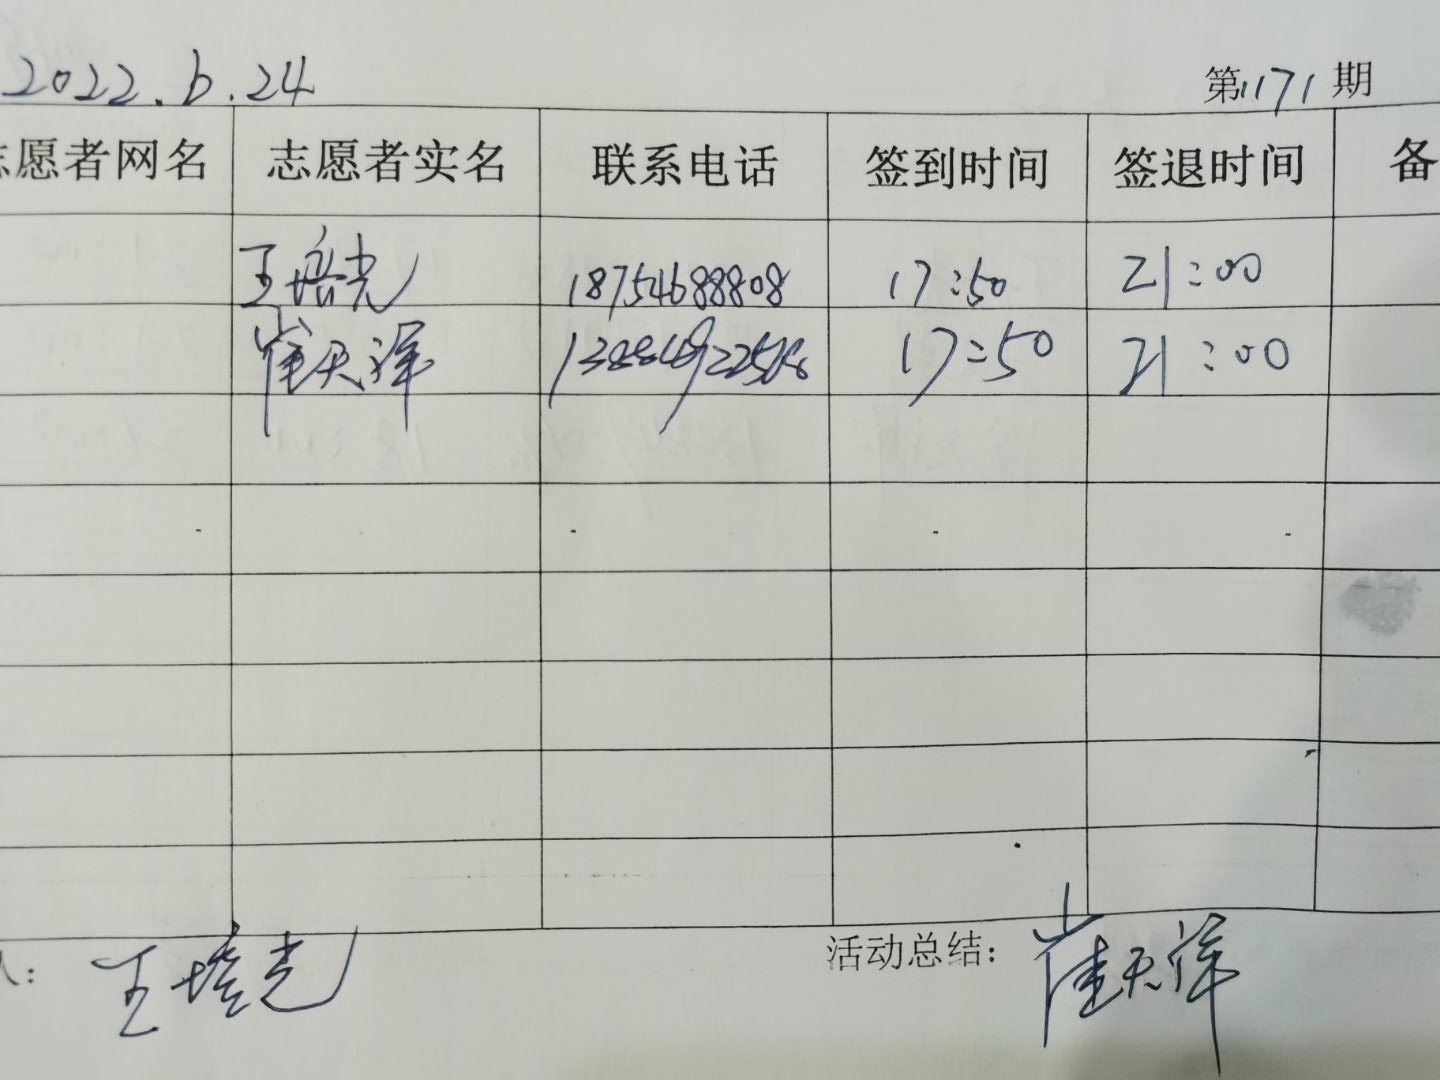 2022.6.24 第1171期
志愿者网名 志愿者实名 联系电话 签到时间 签退时间 备
王培光 18754688808 17:50 21:00
崔天洋 17:50 21:00
人: 王培光 活动总结: 崔天洋